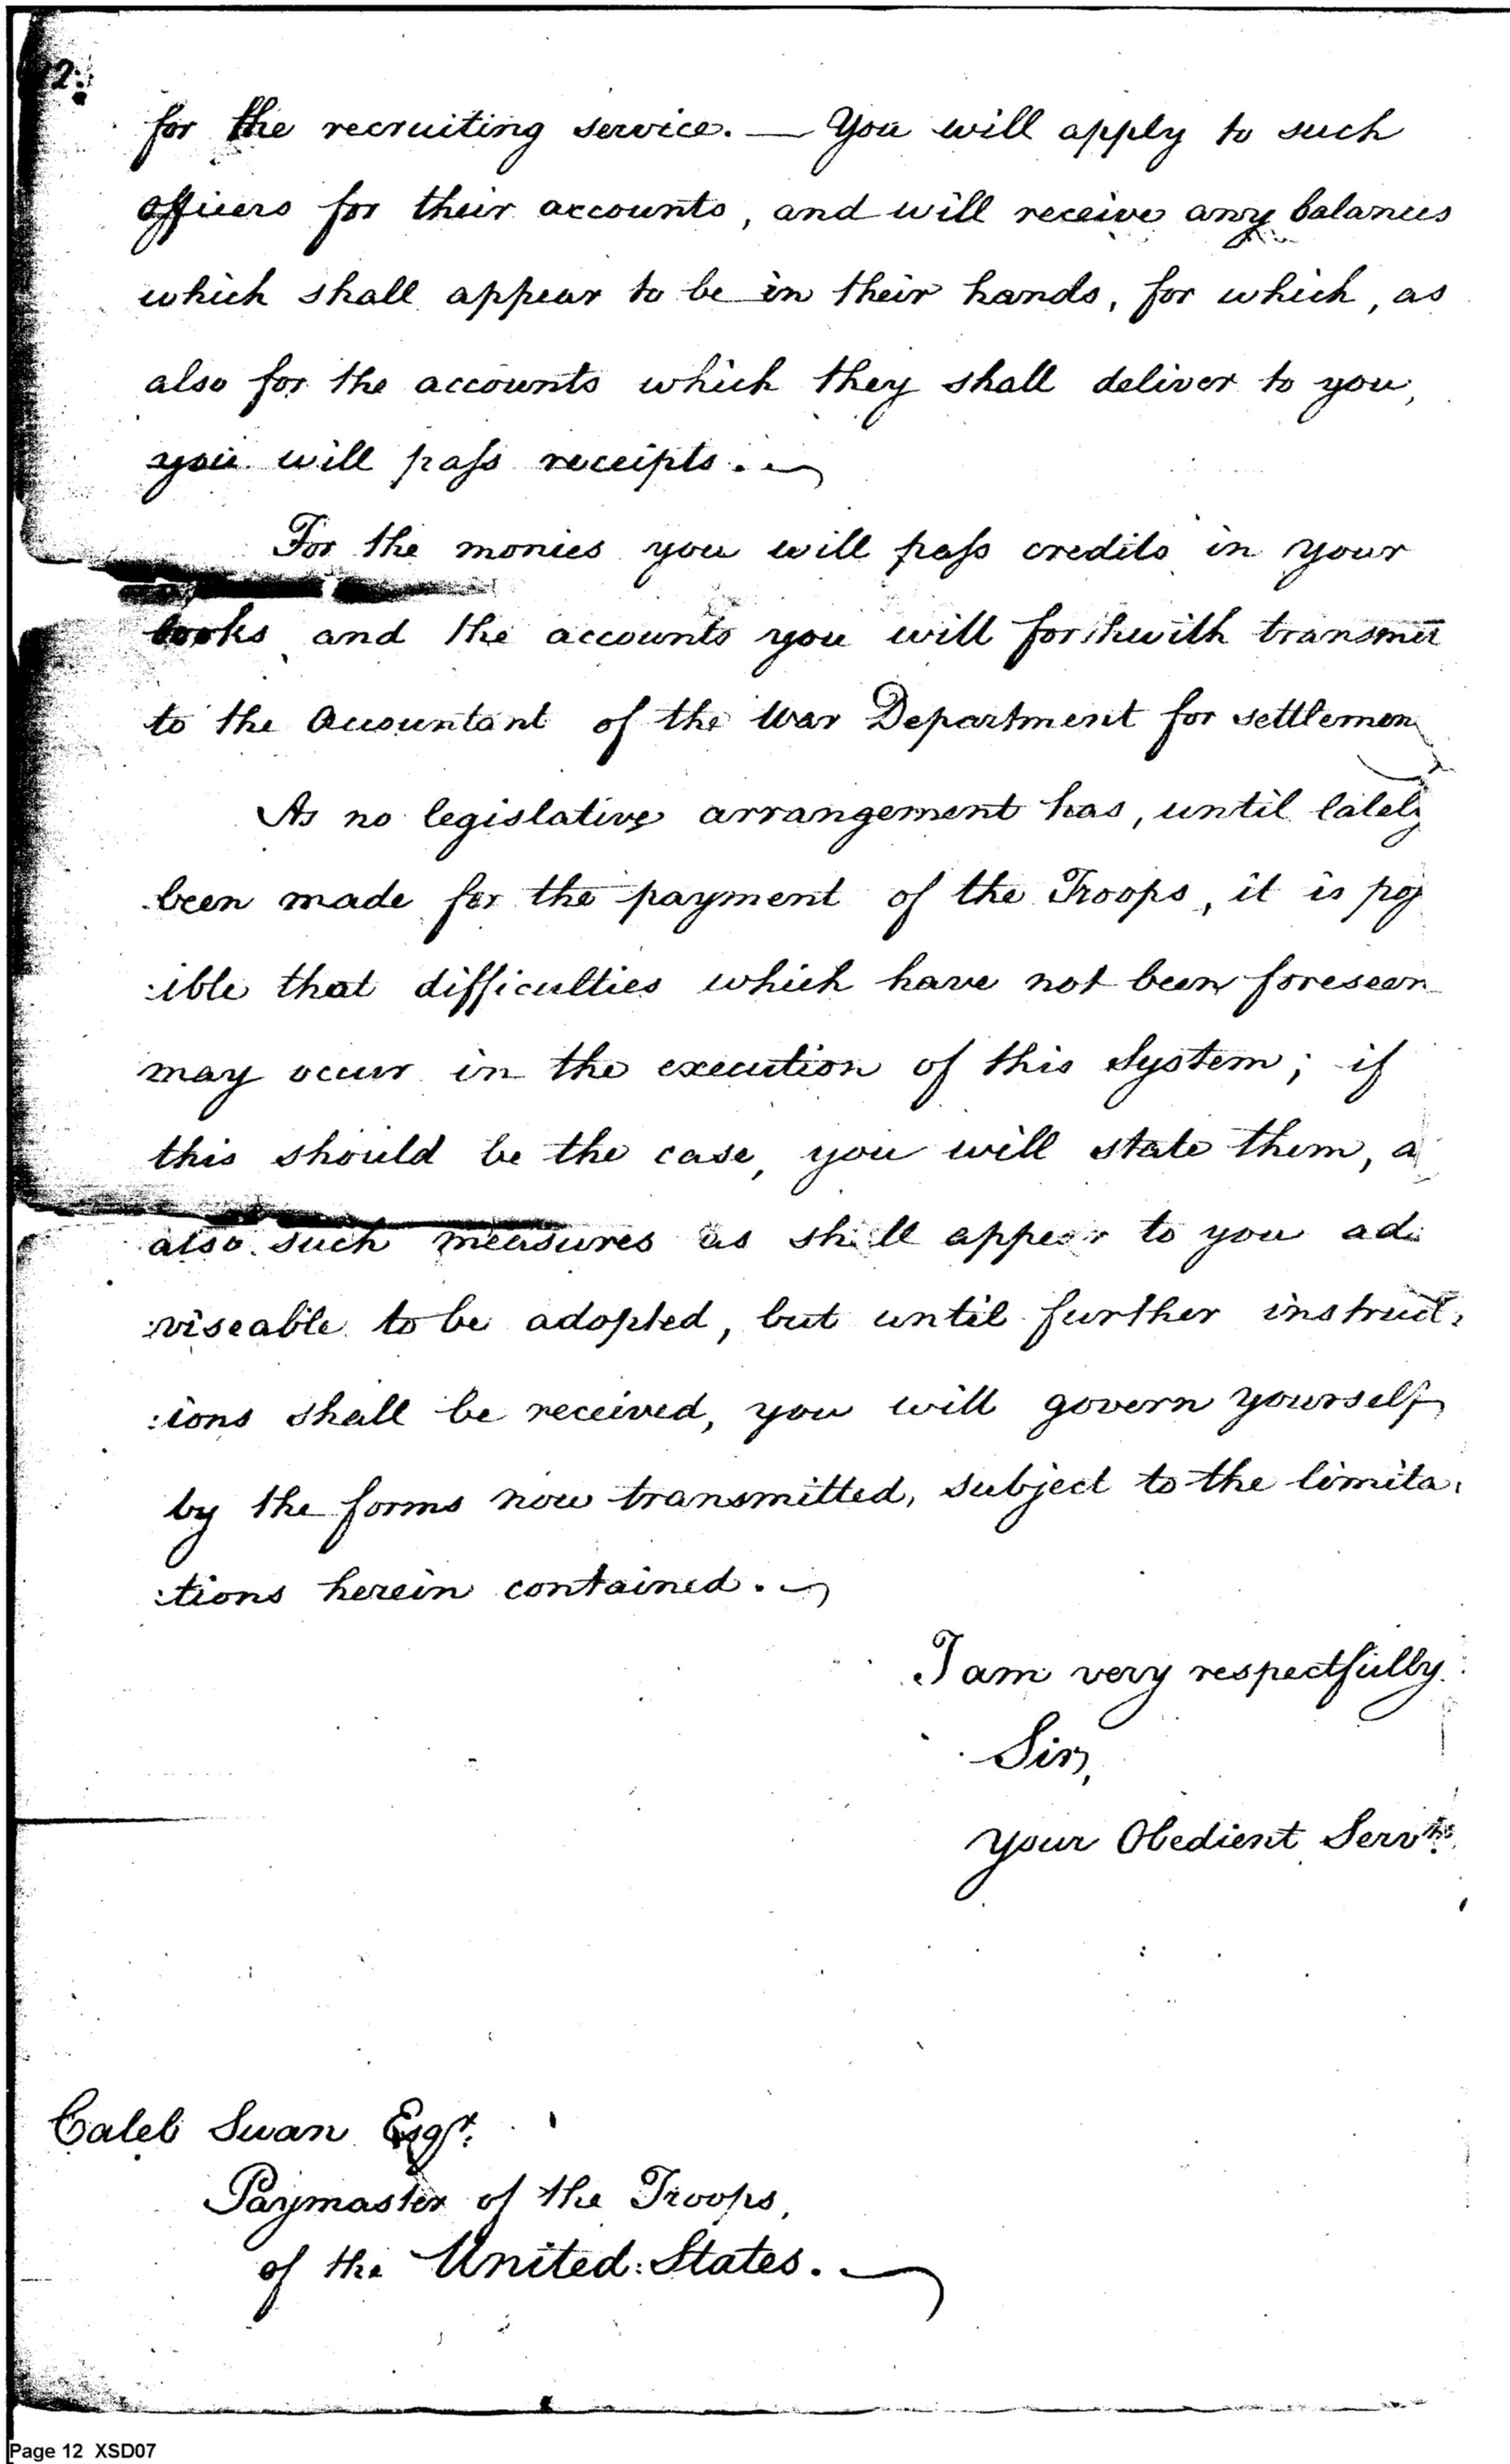 12.
for the recruiting service. — You will apply to such
officers for their accounts, and will receive any balances
which shall appear to be in their hands, for which, as
also for the accounts which they shall deliver to you,
you will paſs receipts.
For the monies you will paſs credits in your
books and the accounts you will forthwith transmit
to the Accountant of the War Department for settlemen
As no legislative arrangement has, until lately
been made for the payment of the Troops, it is poſ
:ible that difficulties which have not been foreseen
may occur in the execution of this System; if
this should be the case, you will state them, a
also such measures as shall appear to you ad:
:viseable to be adopted, but until further instruct:
:ions shall be received, you will govern yourself
by the forms now transmitted, subject to the limita:
:tions herein contained.
I am very respectfully
Sir,
your Obedient Servt.
Caleb Swan Esqr.
Paymaster of the Troops,
of the United: States.
Page 12 XSD07